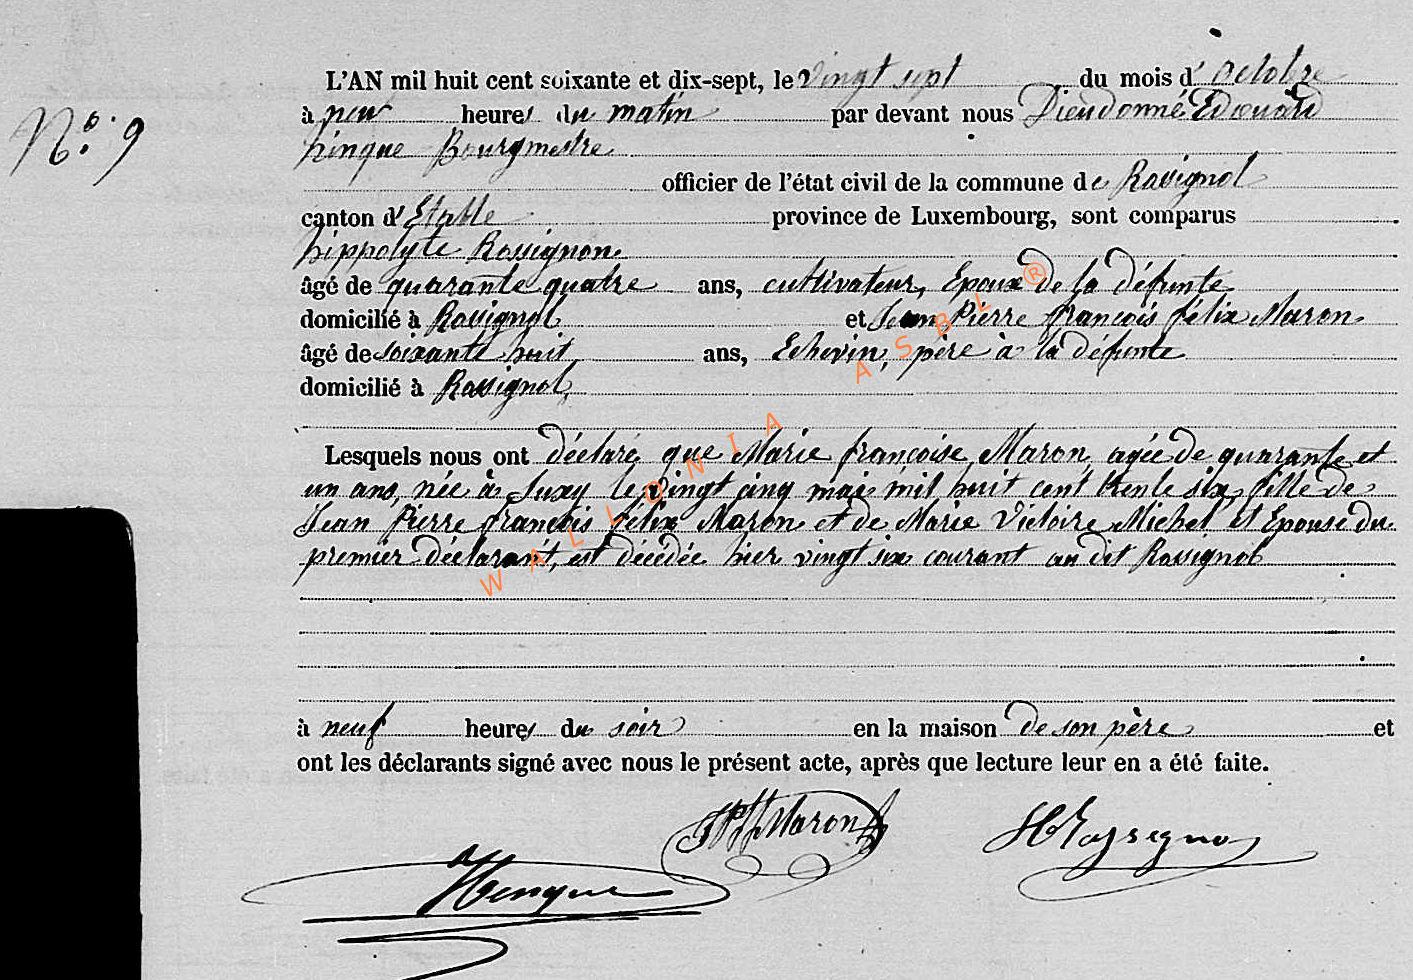 N.º 9
L'AN mil huit cent soixante et dix-sept, le vingt sept du mois d' octobre
à neuf heures du matin par devant nous Dieudonné Edouard
hinque Bourgmestre
officier de l'état civil de la commune de Rossignol
canton d' Etalle province de Luxembourg, sont comparus
hippolyte Rossignon
âgé de quarante quatre ans, cultivateur, Epoux de la défunte
domicilié à Rossignol et Jean Pierre françois félix Maron
âgé de soixante huit ans, Echevin, père à la défunte
domicilié à Rossignol,
Lesquels nous ont déclaré que Marie françoise Maron, agée de quarante et
un ans, née à Suxy le vingt cinq mai mil huit cent trente six, fille de
Jean Pierre francois félix Maron et de Marie Victoire Michel et Epouse du
premier déclarant, est décédée hier vingt six courant au dit Rossignol
à neuf heures du soir en la maison de son père et
ont les déclarants signé avec nous le présent acte, après que lecture leur en a été faite.
JPff Maron
H Rossignon
Hinque
WALLONIA ASBL ®